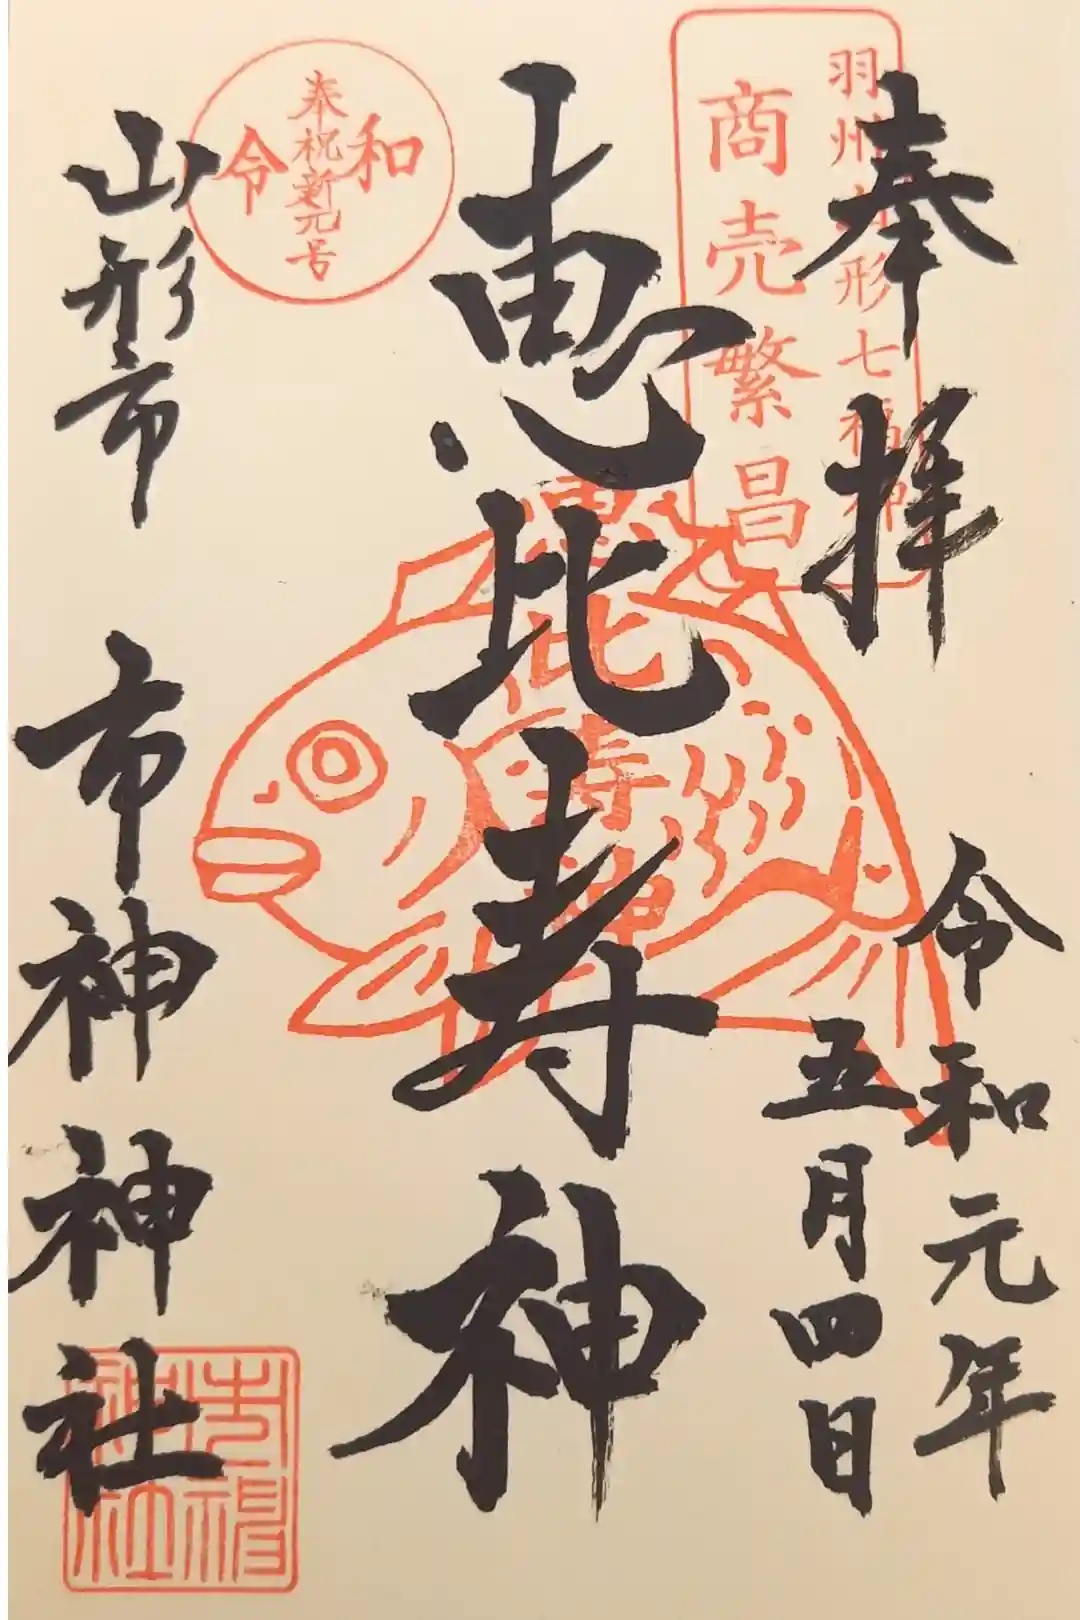 奉拝
令和元年
五月四日
羽州山形七福神
商売繁昌
恵比寿神
恵比寿神
奉祝新元号
令和
山形市 市神神神社
市神神社